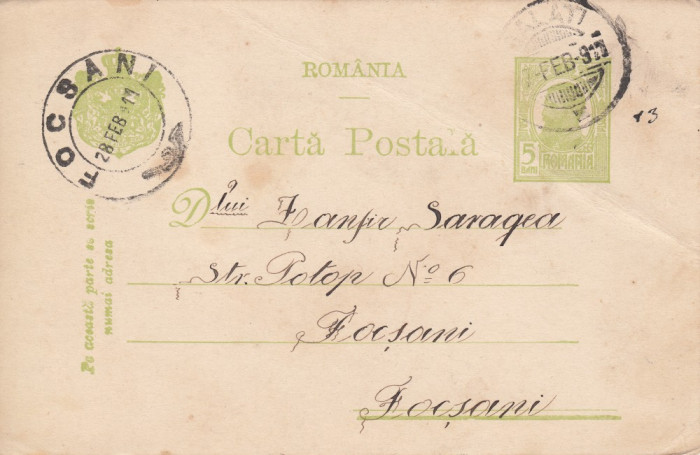 FOCSANI
28 FEB 911
ROMÂNIA
GALATI
FEB 911
5
BANI
ROMANIA
13
Cartă Postală
Dlui Zanfir Saragea
Str. Potop No 6
Focșani
Focșani
Pe această parte se scrie
numai adresa